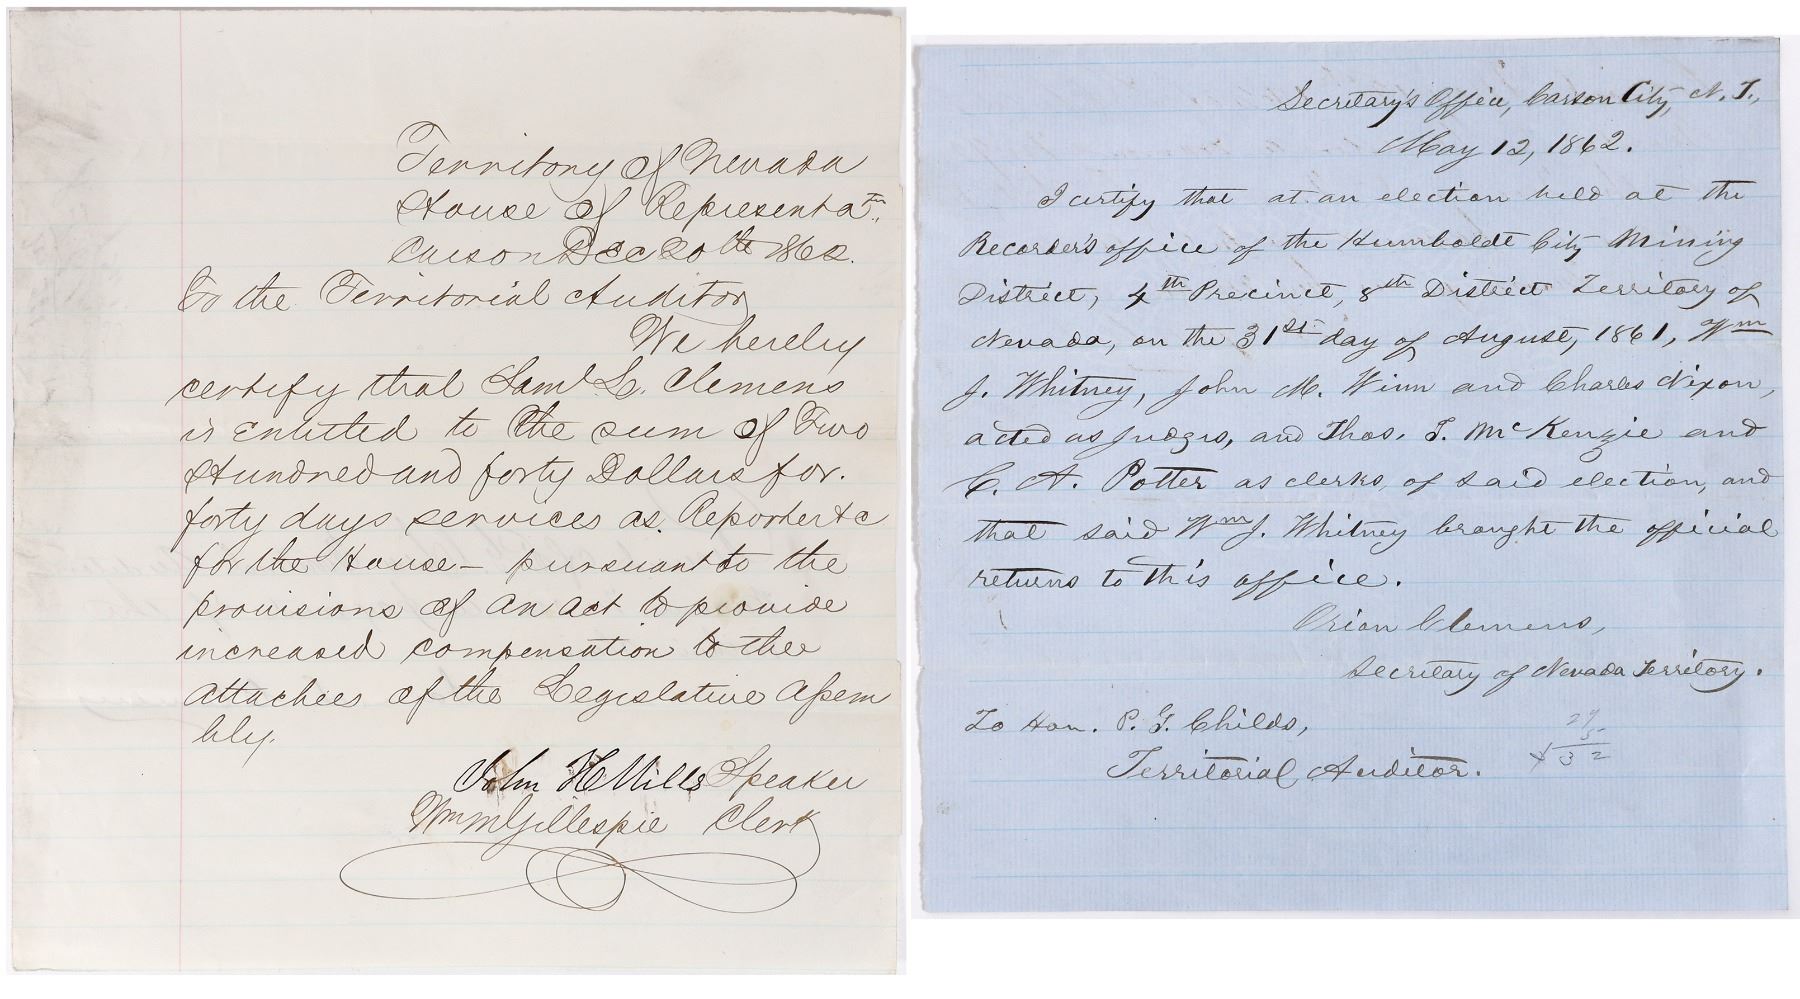 Territory of Nevada
House of Representatn.
Carson Dec 20th 1862.
To the Territorial Auditor
We hereby
certify that Saml L. Clemens
is entitled to the sum of Two
Hundred and forty Dollars for.
forty days services as. Reporter &c
for the House – pursuant to the
provisions of an act to provide
increased compensation to the
attachees of the Legislative Assem
bly.
John H Mills Speaker
Wm M Gillespie Clerk
Secretary's Office, Carson City, N. T.,
May 12, 1862.
I certify that at an election held at the
Recorder's office of the Humboldt City Mining
District, 4th Precinct, 8th District Territory of
Nevada, on the 31st day of August, 1861, Wm
J. Whitney, John M. Winn and Charles Nixon,
acted as judges, and Thos. T. McKenzie and
C. A. Potter as clerks, of said election, and
that said Wm J. Whitney brought the official
returns to this office.
Orion Clemens,
Secretary of Nevada Territory.
To Hon. P. G. Childs,
Territorial Auditor.
27
5
32